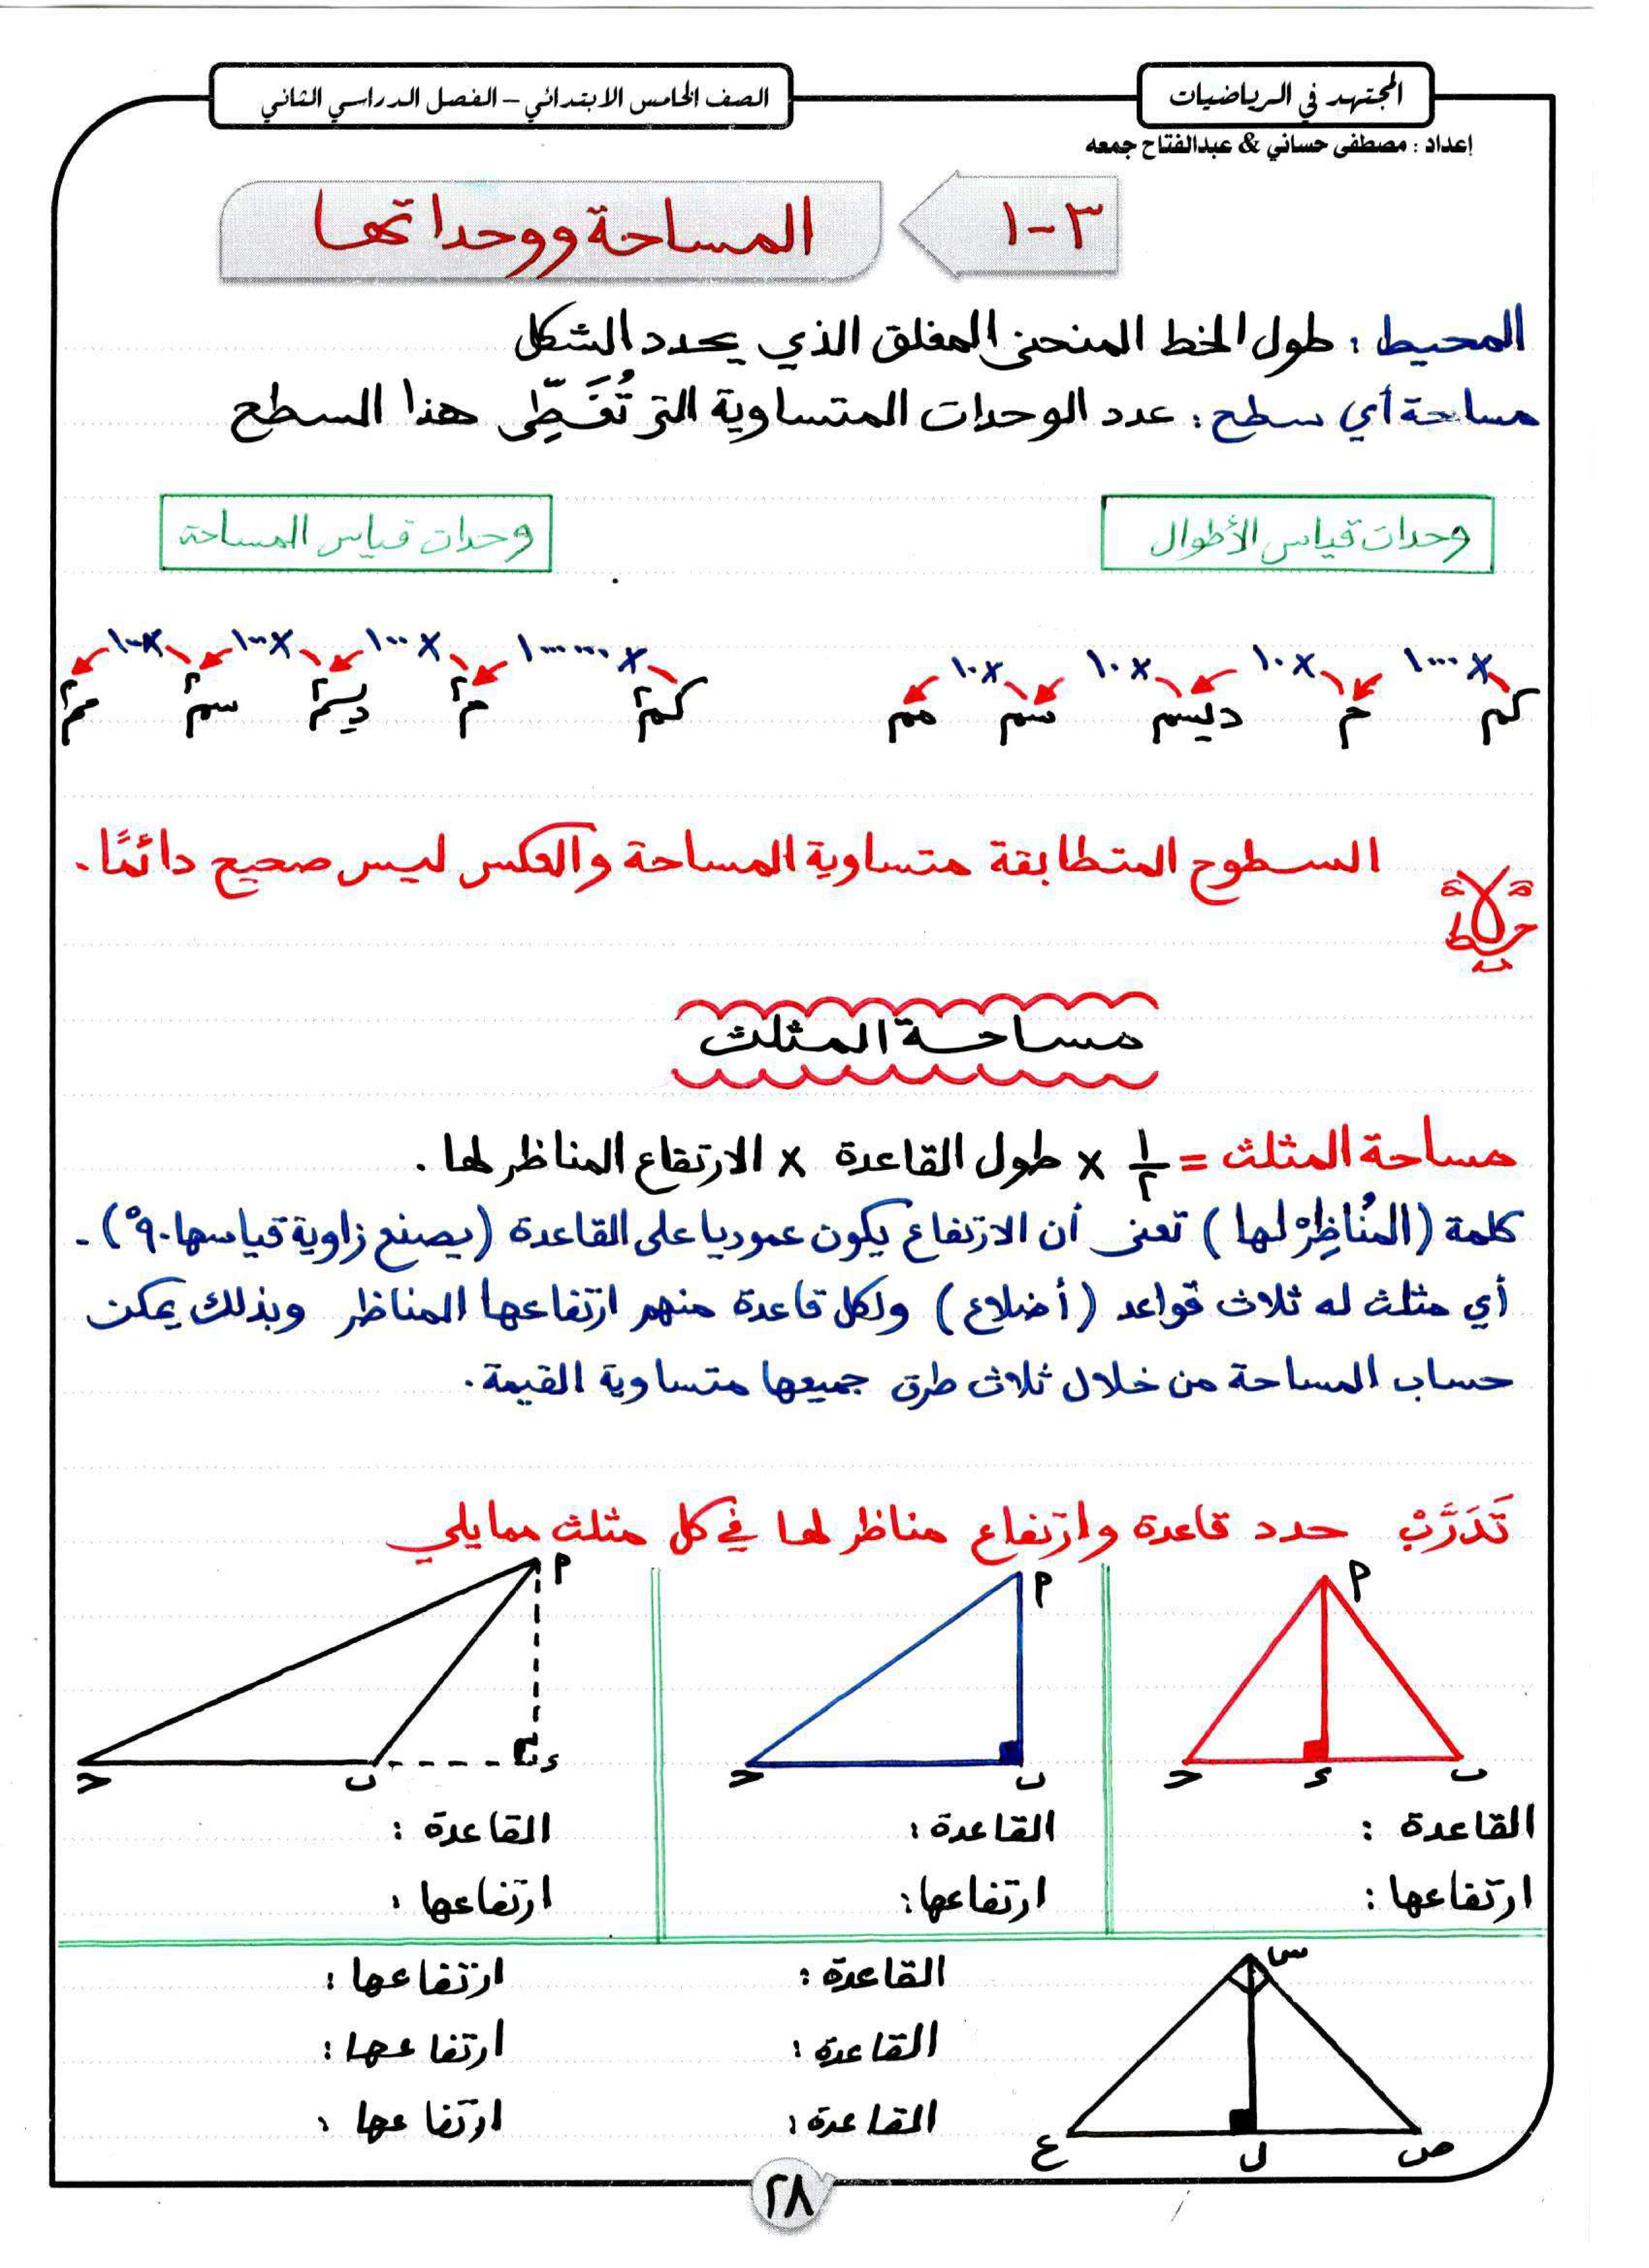 المجتهد في الرياضيات
الصف الخامس الابتدائي – الفصل الدراسي الثاني
إعداد : مصطفى حساني & عبدالفتاح جمعه
٣-١
المساحة ووحداتها
المحيط : طول الخط المنحنى المغلق الذي يحدد الشكل
مساحة أي سطح : عدد الوحدات المتساوية التى تُغَطِّى هذا السطح
وحدات قياس الأطوال
وحدات قياس المساحة
×١٠٠٠ ×١٠ ×١٠ ×١٠
كم م ديسم سم مم
×١٠٠٠٠٠٠ ×١٠٠ ×١٠٠ ×١٠٠
كم٢ م٢ ديسم٢ سم٢ مم٢
ملاحظة
السطوح المتطابقة متساوية المساحة والعكس ليس صحيح دائمًا.
مساحة المثلث
مساحة المثلث = ١/٢ × طول القاعدة × الارتفاع المناظر لها .
كلمة (المُناظِرْ لها ) تعنى أن الارتفاع يكون عموديا على القاعدة (يصنع زاوية قياسها ٩٠°) .
أي مثلث له ثلاث قواعد (أضلاع) ولكل قاعدة منهم ارتفاعها المناظر وبذلك يمكن
حساب المساحة من خلال ثلاث طرق جميعها متساوية القيمة.
تَدَرَّبْ حدد قاعدة وارتفاع مناظر لها في كل مثلث مما يلي
م ب ء ح
م ب ح
م ء ب ح
القاعدة : القاعدة : القاعدة :
ارتفاعها : ارتفاعها : ارتفاعها :
س ص ل ع
القاعدة : ارتفاعها :
القاعدة : ارتفاعها :
القاعدة : ارتفاعها :
٢٨